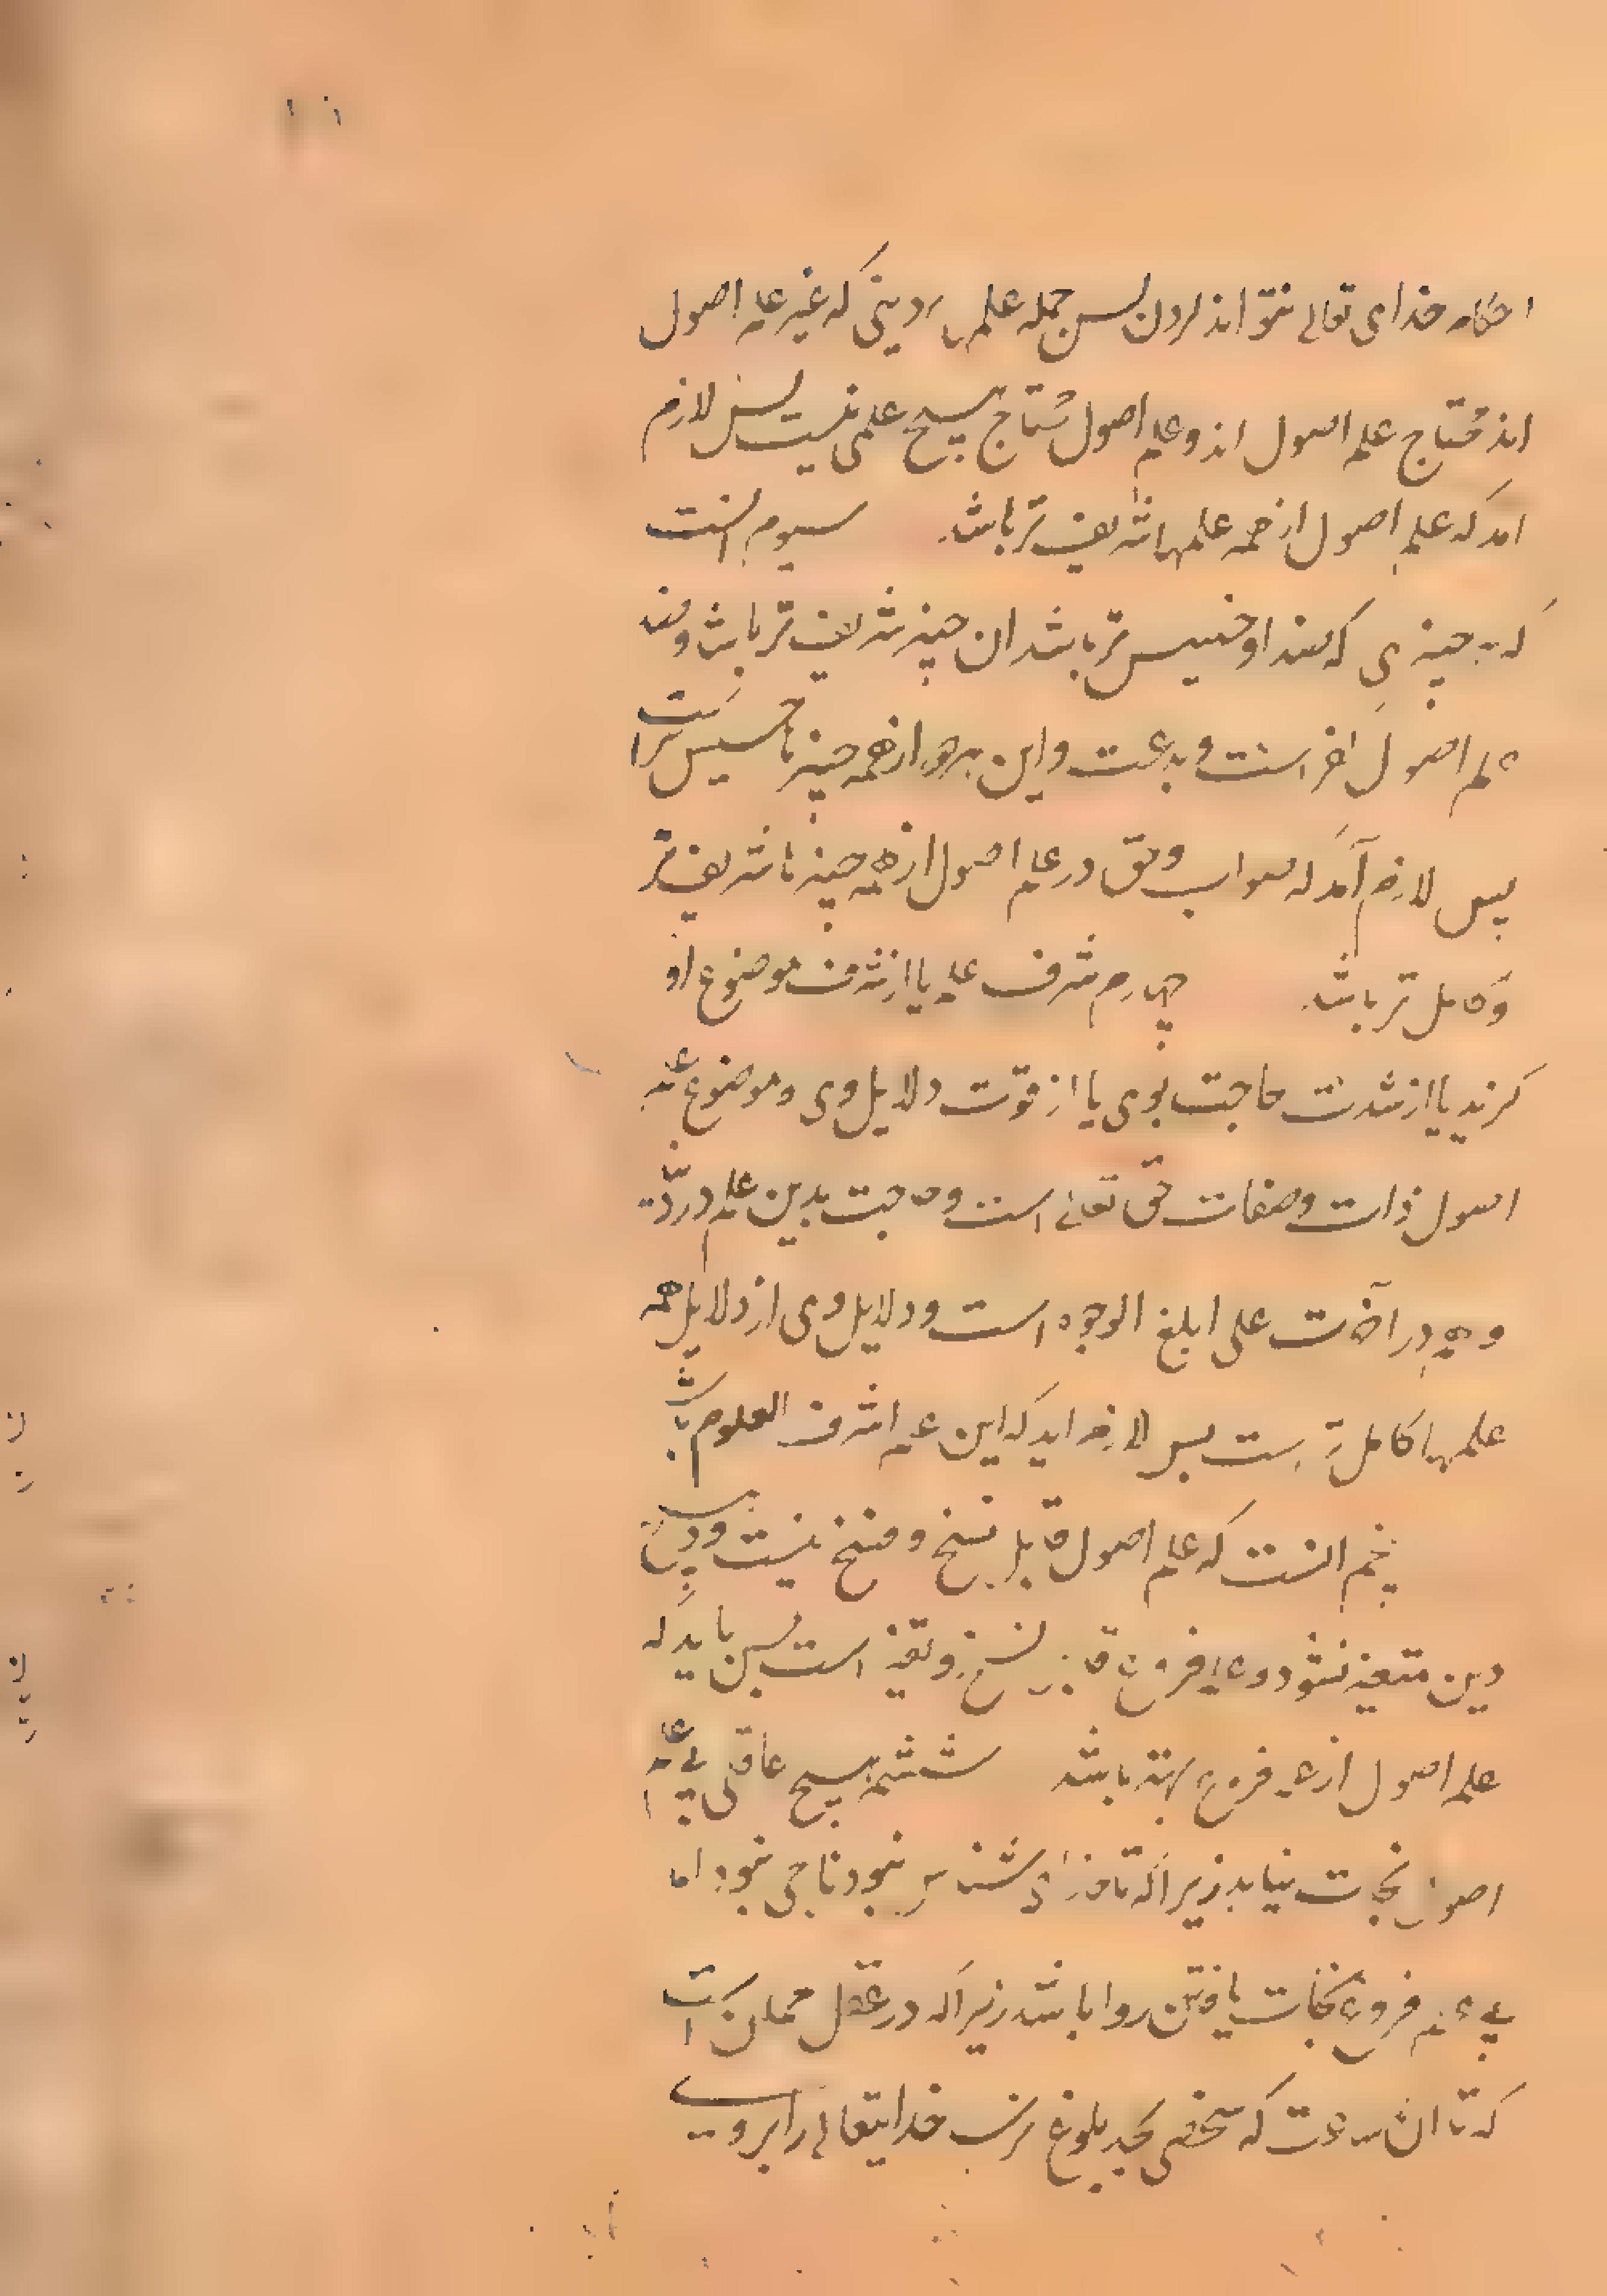 احکام خدای تعالی نتواند کردن پس جمله علمهاء دینی که غیر علم اصول
اند محتاج علم اصول اند و علم اصول محتاج هیچ علمی نیست پس لازم
امد که علم اصول از همه علمها شریف تر باشد سیوم انست
که هر چیزی که ضد او خسیس تر باشد ان چیز شریف تر باشد و ضد
علم اصول کفر است و بدعت و این هر دو از همه چیزها خسیس تر است
پس لازم آمد که صواب و حق در علم اصول از همه چیزها شریف تر
و کامل تر باشد چهارم شرف علم یا از شرف موضوع او
گیرند یا از شدت حاجت بوی یا از قوت دلایل وی و موضوع علم
اصول ذات و صفات حق تعالی است و حاجت بدین علم در دنیا
و هم در آخرت علی ابلغ الوجوه است و دلایل وی از دلایل همه
علمها کامل تر است پس لازم اید که این علم اشرف العلوم باشد
پنجم انست که علم اصول قابل نسخ و فسخ نیست و
دین متغیر نشود و علم فروع قابل نسخ و تغیر است پس باید که
علم اصول از علم فروع بهتر باشد ششم هیچ عاقلی بی علم
اصول نجات نیابد زیرا که تا خدای شناس نبود ناجی نبود اما
بی علم فروع نجات یافتن روا باشد زیرا که در عقل ممکن است
که تا ان ساعت که شخصی بحد بلوغ رسد خدایتعالی را بر وی